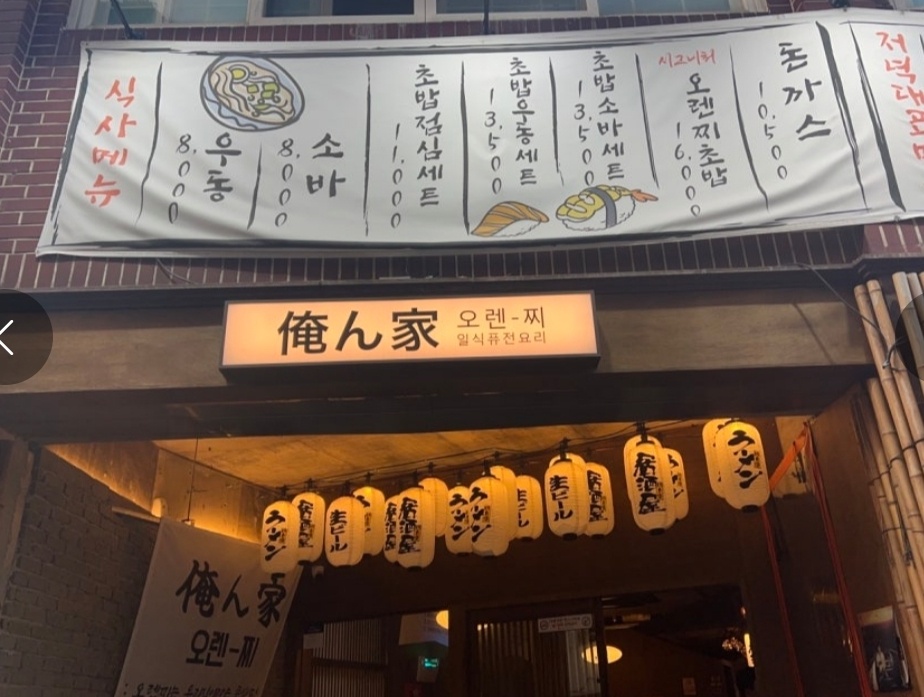 식사메뉴
우동
8.000
소바
8.000
초밥점심세트
11.000
초밥우동세트
13.500
초밥소바세트
13.500
시그니처
오렌찌초밥
16.000
돈까스
10.500
俺ん家
오렌-찌
일식퓨전요리
ラーメン
居酒屋
生ビール
居酒屋
ラーメン
生ビール
居酒屋
ラーメン
俺ん家
오렌-찌